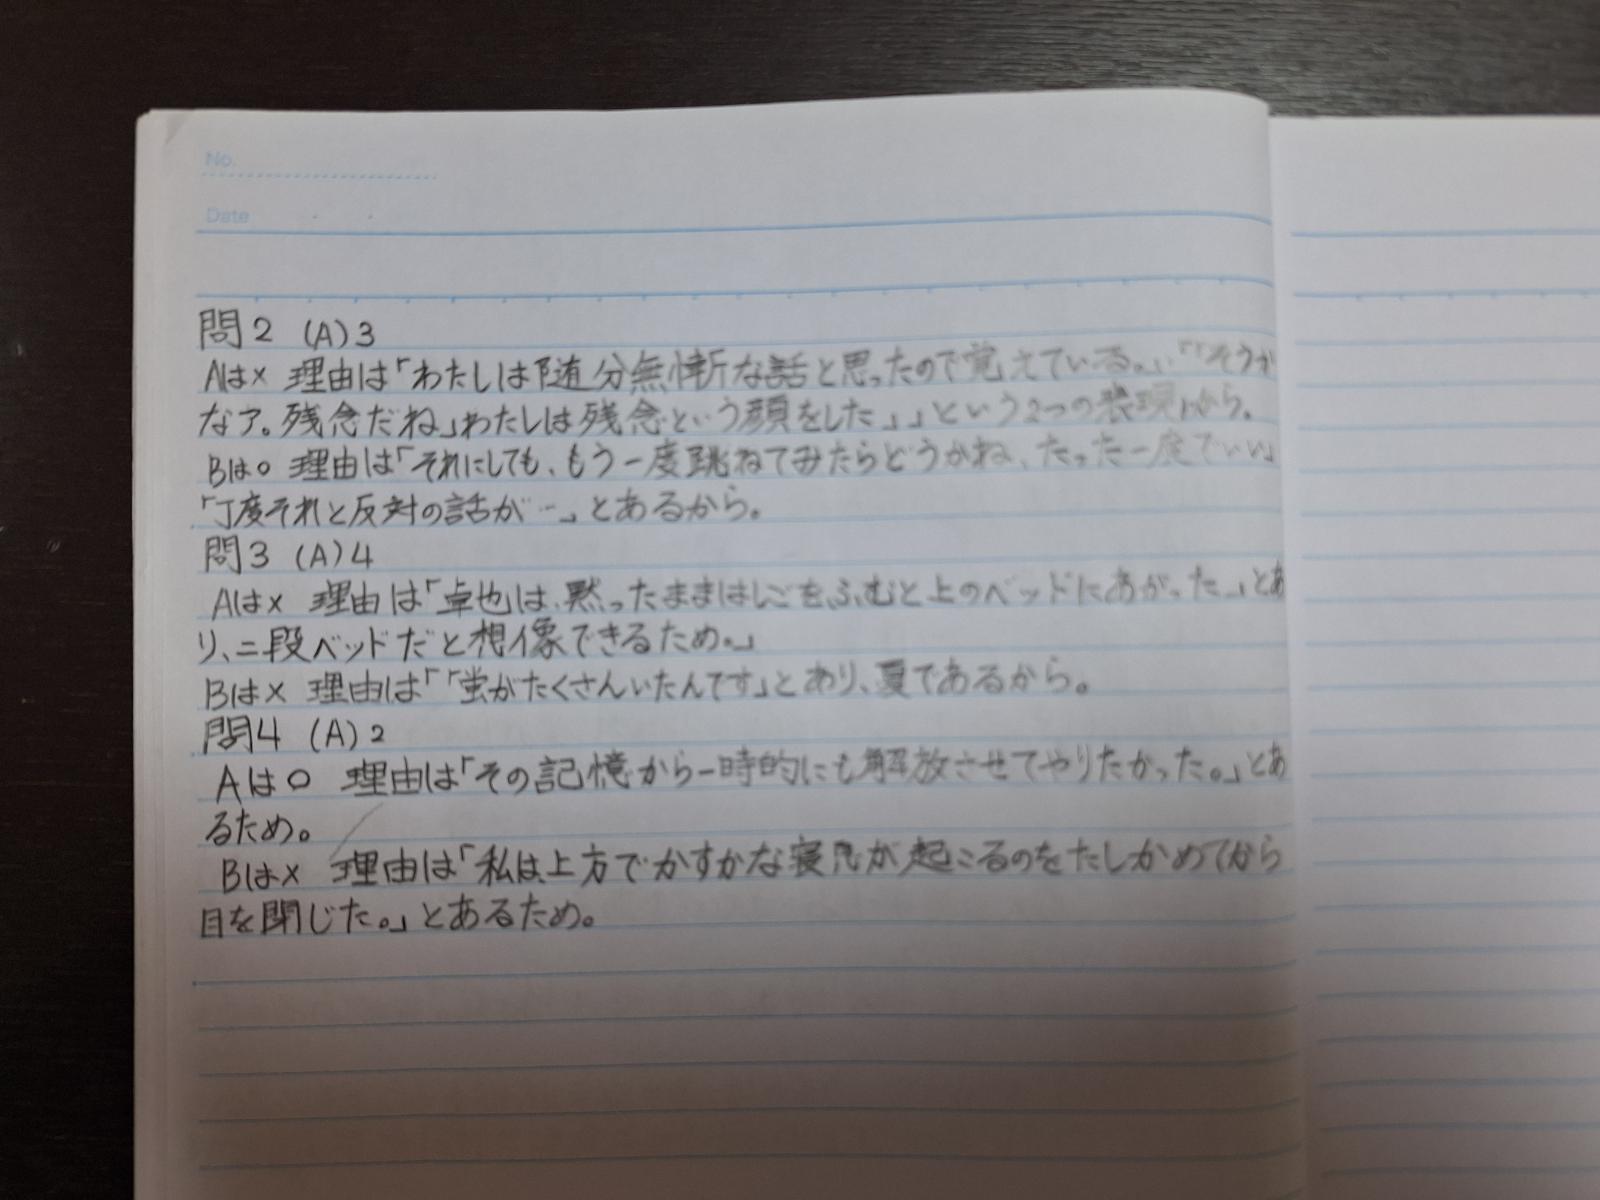 No.
Date
問2 (A)3
Aは× 理由は「わたしは随分無慚な話と思ったので覚えている。」「「そうか
なア。残念だね」わたしは残念という顔をした」」という2つの表現から。
Bは○ 理由は「それにしても、もう一度跳ねてみたらどうかね、たった一度でいい」
「丁度それと反対の話が…」とあるから。
問3 (A)4
Aは× 理由は「卓也は、黙ったままはしごをふむと上のベッドにあがった」とあ
り、二段ベッドだと想像できるため。」
Bは× 理由は「「蛍がたくさんいたんです」とあり、夏であるから。
問4 (A)2
Aは○ 理由は「その記憶から一時的にも解放させてやりたかった。」とあ
るため。
Bは× 理由は「私は、上方でかすかな寝息が起こるのをたしかめてから
目を閉じた。」とあるため。